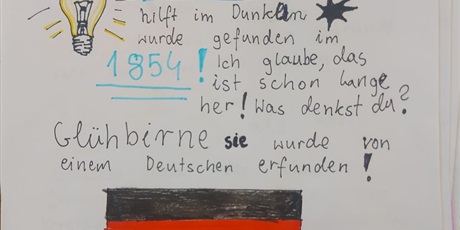 hilft im Dunkeln
wurde gefunden im
1854! Ich glaube, das
ist schon lange
her! Was denkst du?
Glühbirne sie wurde von
einem Deutschen erfunden!